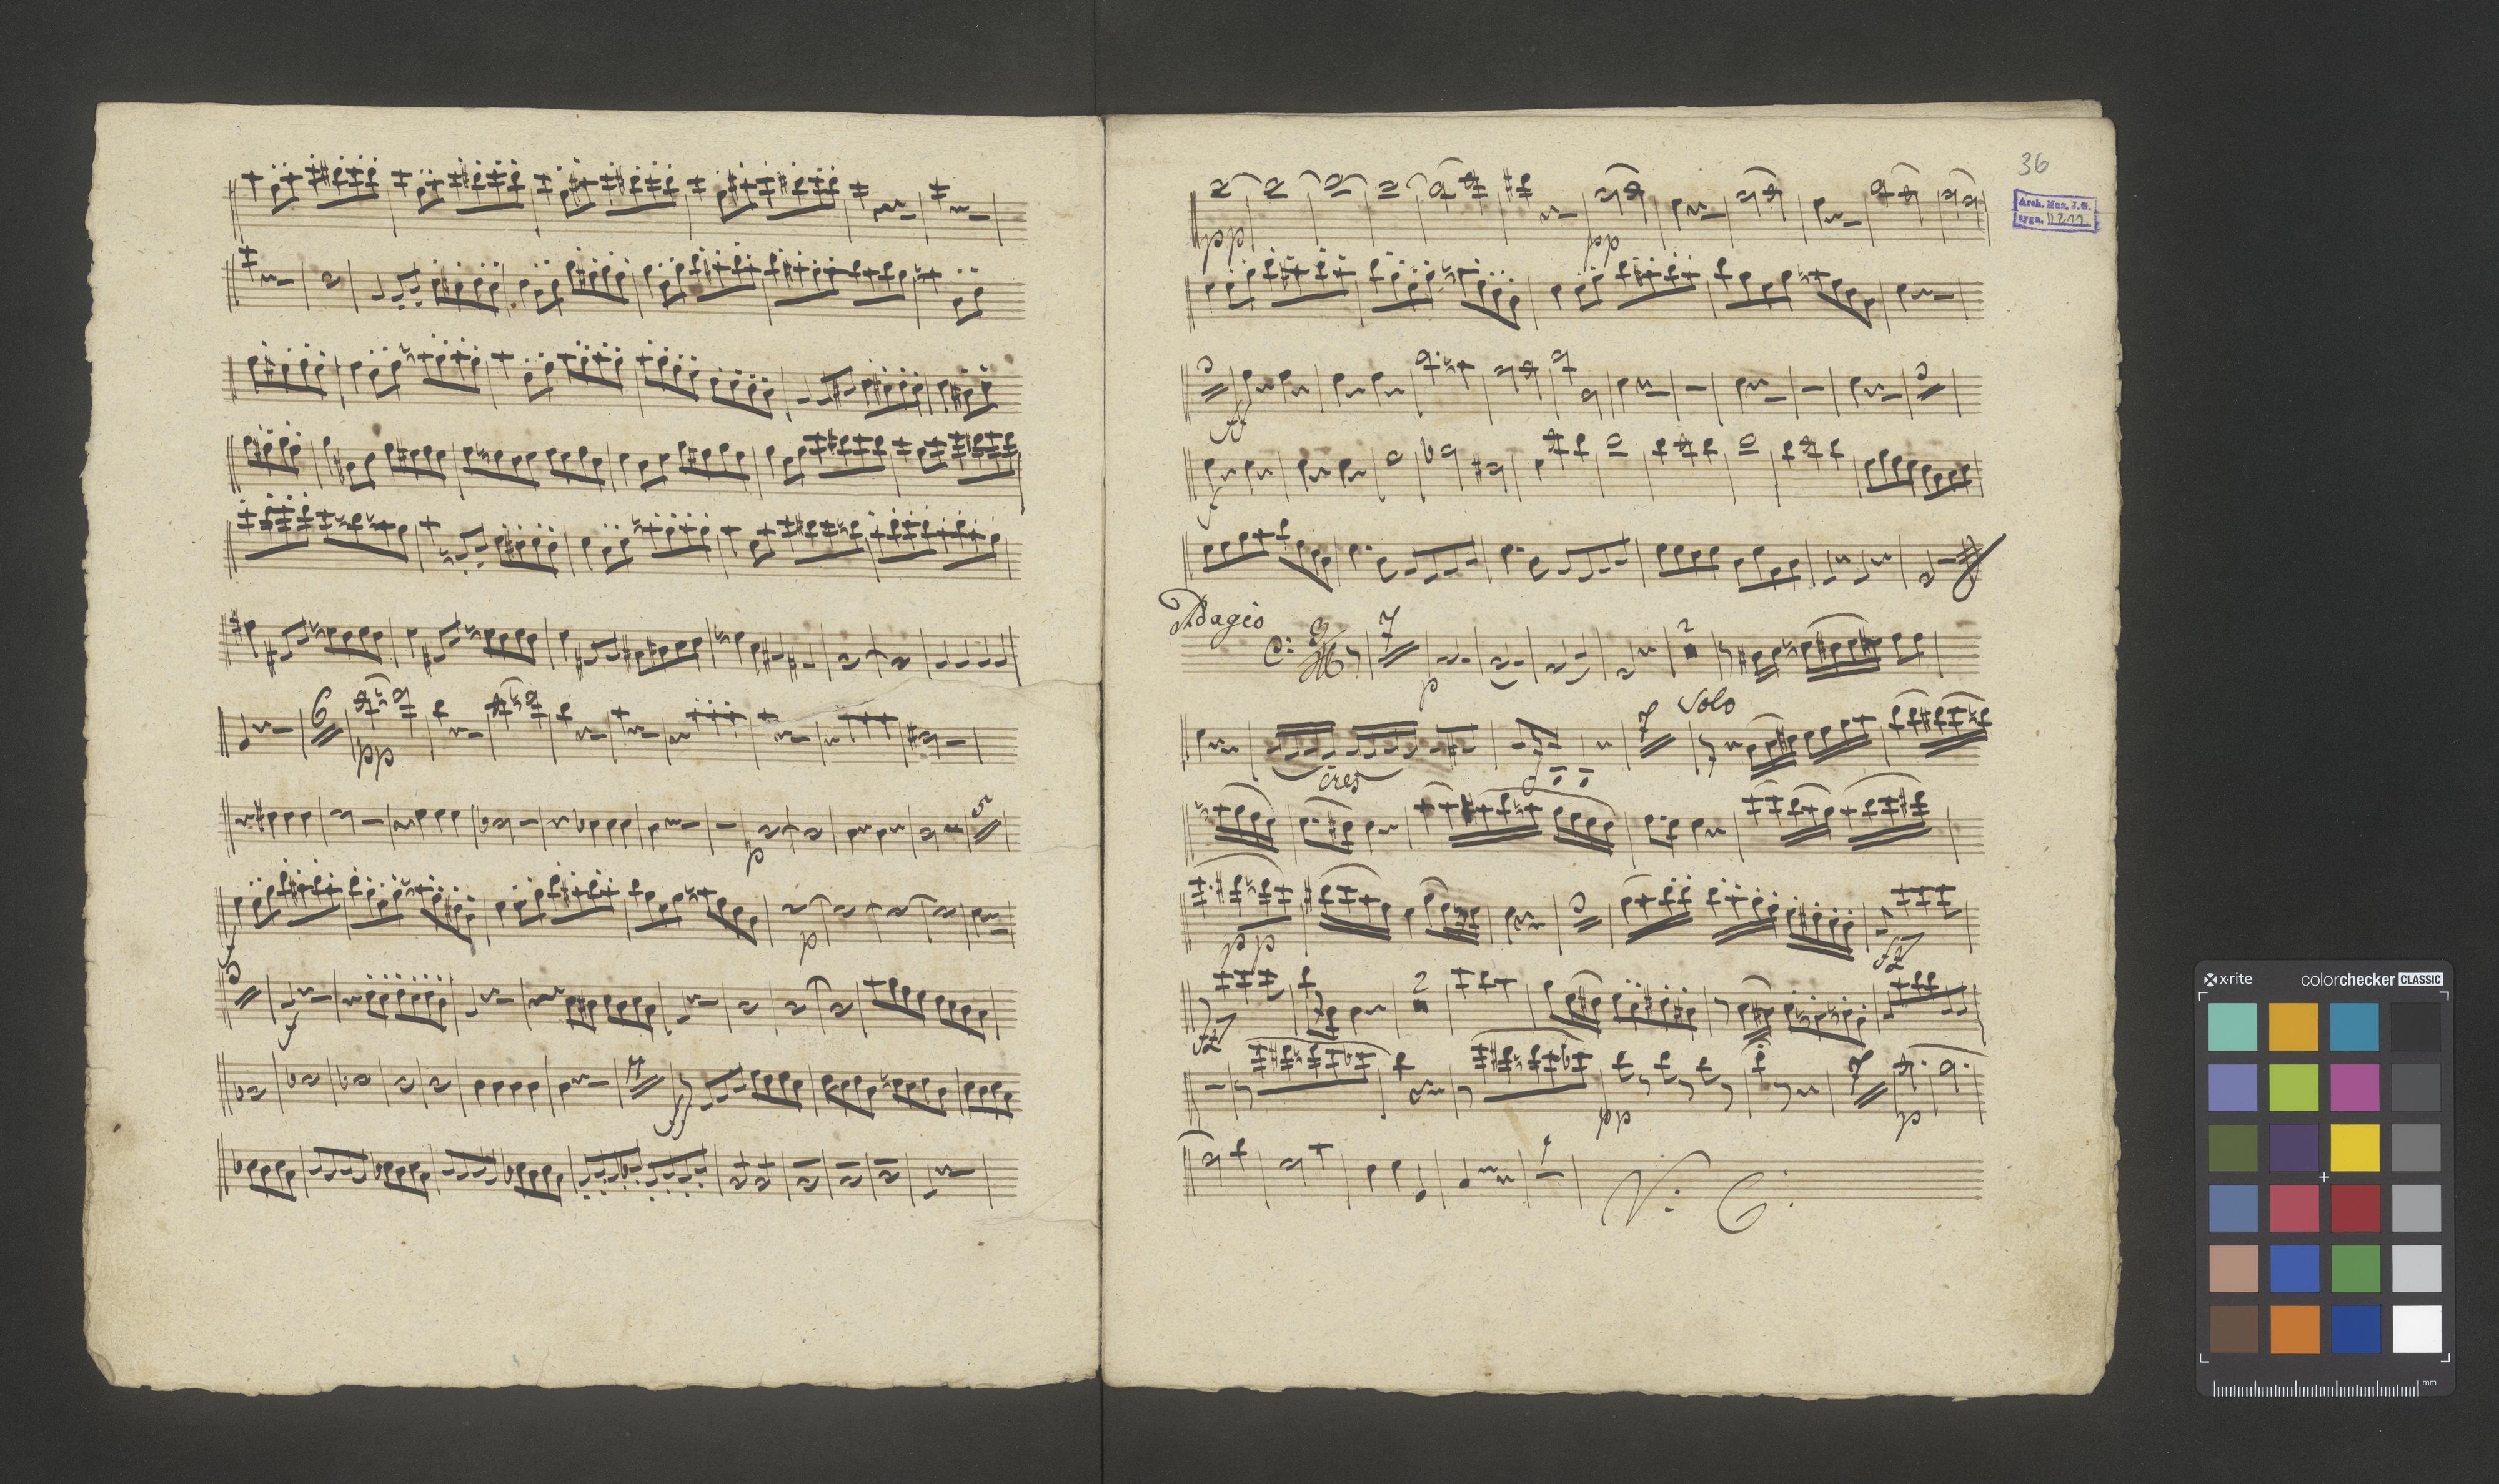 6
pp
p
5
f
p
f
4
ff
36
Arch. Muz. J. G.
sygn. II 211
pp
pp
ff
f
Adagio
C: 3/4
7
p
2
7
Solo
cres
pp
fz
fz
2
pp
7
p
V:
x-rite
colorchecker CLASSIC
mm